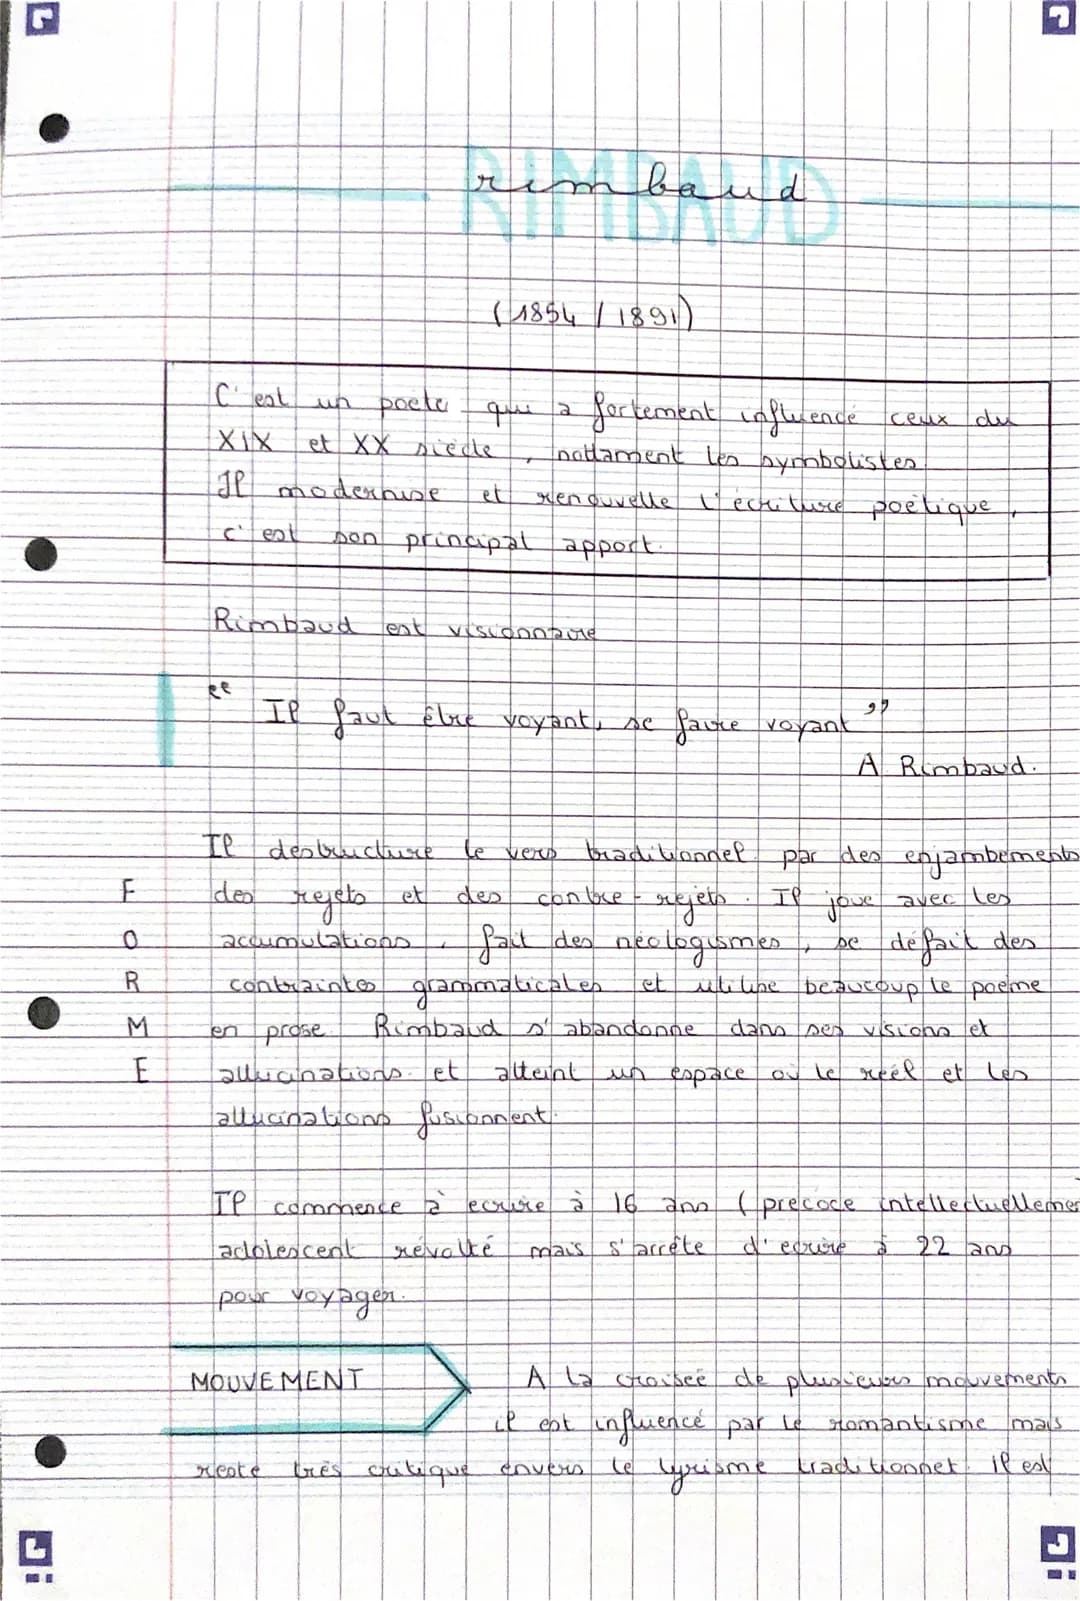 RIMBAUD
rimbaud
(1854 / 1891)
C'est un poete qui a fortement influencé ceux du
XIX et XX siècle, nottament les symbolistes.
Il modernise et renouvelle l'écriture poétique,
c'est son principal apport.
Rimbaud est visionnaire
“ Il faut être voyant, se faire voyant ”
A Rimbaud.
Il destructure le vers traditionnel par des enjambements
des rejets et des contre-rejets. Il joue avec les
accumulations, fait des néologismes, se défait des
contraintes grammaticales et utilise beaucoup le poeme
en prose. Rimbaud s'abandonne dans ses visions et
allucinations et atteint un espace où le réel et les
allucinations fusionnent.
FORME
Il commence à ecrire à 16 ans (precoce intellectuellemen
adolescent révolté mais s'arrête d'ecrire à 22 ans
pour voyager.
MOUVEMENT
A la croisée de plusieurs mouvements
il est influencé par le romantisme mais
reste très critique envers le lyrisme traditionnel. Il est